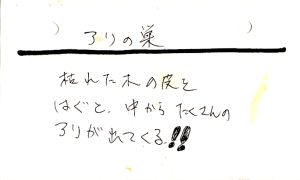 アリの巣
枯れた木の皮を
はぐと、中からたくさんの
アリが出てくる!!